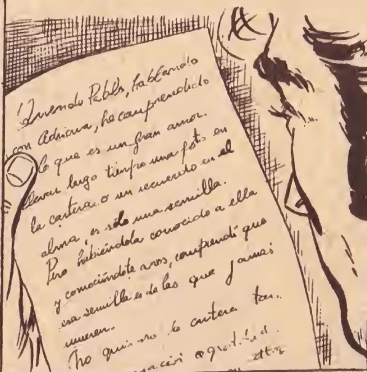 Querido Pablo, hablando
con Adriana, he comprendido
lo que es un gran amor.
Llevar largo tiempo una foto en
la cartera o un recuerdo en el
alma, es sólo una semilla.
Pero habiéndola conocido a ella
y conociéndote a vos, comprendí que
esa semilla es de las que jamás
mueren.
No